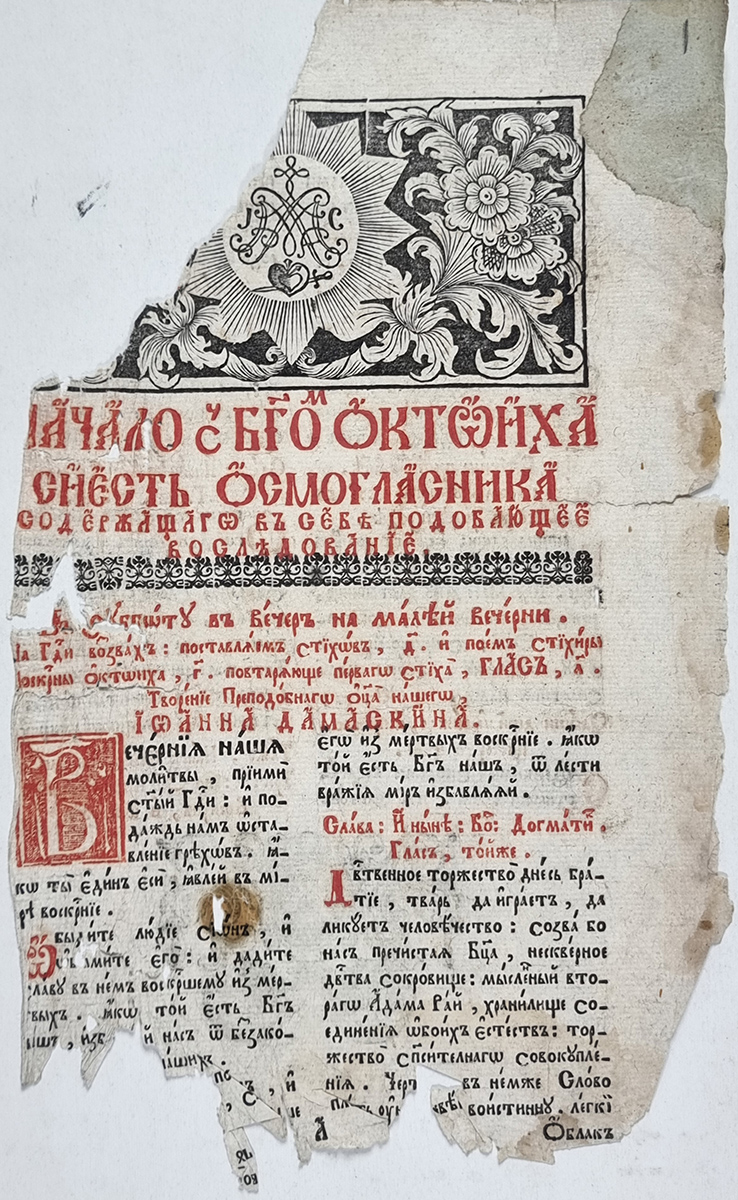 І С
НАЧА́ЛО съ БГ҃О́М Ѻ҆КТѠ́ИХА
СИ́ЕСТЬ Ѻ҆СМОГЛА́СНИКА
СОДЕ́РЖАЩАГѠ ВЪ СЕ́БѢ ПОДОБА́ЮЩЕЕ
ВОСЛѢ́ДОВАНІЕ.
Въ сꙋббѡ́тꙋ въ ве́черъ на ма́лѣй вече́рни.
На Гдⷭ҇и воззва́хъ: поставлѧ́емъ стїхѡ́въ, д҃. и҆ пое́мъ стїхи̑ры
воскрⷭ҇ны ѻ҆ктѡ́иха, г҃. повтарѧ́юще пе́рвагѡ стїха̀, ГЛА́СЪ, а҃.
Творе́нїе Преподо́бнагѡ ѻ҆ц҃а̀ на́шегѡ,
ІѠА́ННА ДАМАСКИ́НА.
Вече́рнїѧ на́шѧ
моли̑твы, прїимѝ
ст҃ы́й Гдⷭ҇и: и҆ по-
да́ждь на́мъ ѡ҆ста-
вле́нїе грѣхѡ́въ. ꙗ҆́-
кѡ ты̀ є҆ди́нъ є҆сѝ, ꙗ҆вле́й въ мі́-
рѣ воскрⷭ҇нїе.
Ѡ҆быди́те лю́дїе сїѡ́нъ, и҆
ѡ҆быми́те є҆го̀: и҆ дади́те
сла́вꙋ въ не́мъ воскрⷭ҇шемꙋ и҆з̾ ме́р-
твыхъ. ꙗ҆́кѡ то́й є҆́сть Бг҃ъ
на́шъ, и҆зб й на́съ ѿ беззако́-
на́шихъ.
є҆гѡ̀ и҆з̾ ме́ртвыхъ воскрⷭ҇нїе. ꙗ҆́кѡ
то́й є҆́сть Бг҃ъ на́шъ, ѿ ле́сти
вра́жїѧ мі́ръ и҆збавлѧ́ѧй.
Сла́ва: И҆ ны́нѣ: Бо: Догма́тї.
Гла́съ, то́йже.
Дв҃ственное торжество̀ дне́сь бра́-
тїе, тва́рь да и҆гра́етъ, да
ликꙋ́етъ человѣ́чество: созва́ бо
на́съ пречи́стаѧ Бц҃а, нескве́рное
дв҃тва сокро́вище: мы́сленый вто-
ра́гѡ А҆да́ма Ра́й, храни́лище со-
едине́нїѧ ѻ҆бои́хъ є҆сте́ствъ: тор-
жество̀ сп҃си́телнагѡ совокꙋпле́-
нїѧ. Черт въ не́мже Сло́во
вои́стиннꙋ. ле́гкїй
А Ѻ҆́блакъ